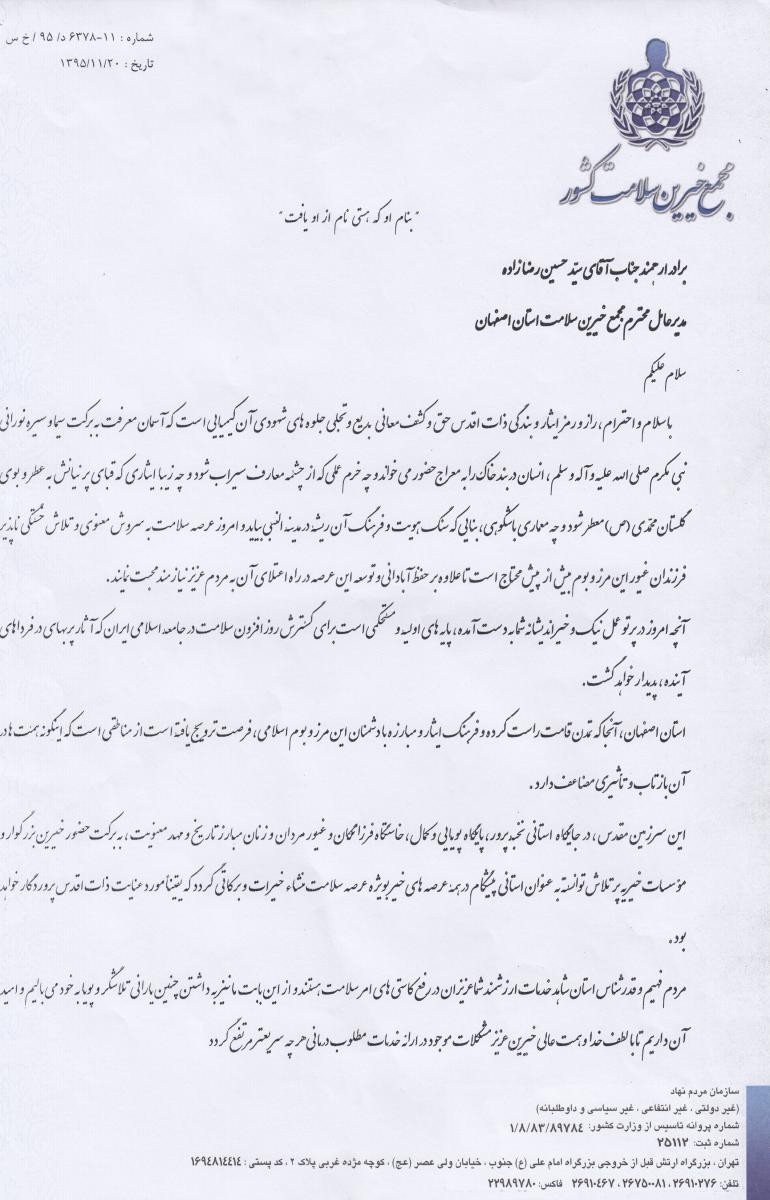 شماره : ۱۱-۶۳۷۸ د/ ۹۵ / خ س
تاریخ : ۱۳۹۵/۱۱/۲۰
مجمع خیرین سلامت کشور
"بنام او که هستی نام از او یافت"
برادر ارجمند جناب آقای سیّد حسین رضازاده
مدیر عامل محترم مجمع خیرین سلامت استان اصفهان
سلام علیکم
باسلام و احترام، راز و رمز ایثار و بندگی ذات اقدس حق و کشف معانی بدیع و تجلی جلوه های شهودی آن کیمیایی است که آسمان معرفت به برکت سیما و سیره نورانی
نبی مکرم صلی الله علیه و آله و سلم ، انسان در بند خاک را به معراج حضور می خواند و چه خرم عملی که از چشمه معارف سیراب شود و چه زیبا ایثاری که قبای پرنیانش به عطر و بوی
گلستان محمّدی (ص) معطر شود و چه معماری باشکوهی، بنایی که سنگ هویت و فرهنگ آن ریشه در مدینه النبی بیابد و امروز عرصه سلامت به سروش معنوی و تلاش خستگی ناپذیر
فرزندان غیور این مرز و بوم بیش از پیش محتاج است تا علاوه بر حفظ آبادانی و توسعه این عرصه در راه اعتلای آن به مردم عزیز نیازمند محبت نمایند .
آنچه امروز در پرتو عمل نیک و خیراندیشانه شما به دست آمده، پایه های اولیه و مستحکمی است برای گسترش روز افزون سلامت در جامعه اسلامی ایران که آثار پربهای در فرداهای
آینده، پدیدار خواهد گشت.
استان اصفهان، آنجا که تمدن قامت راست کرده و فرهنگ ایثار و مبارزه با دشمنان این مرز و بوم اسلامی، فرصت ترویج یافته است از مناطقی است که اینگونه همت ها در
آن بازتاب و تأثیری مضاعف دارد .
این سرزمین مقدس، در جایگاه استانی نخبه پرور، پایگاه پویایی و کمال، خاستگاه فرزانگان و غیور مردان و زنان مبارز تاریخ و مهد معنویت، به برکت حضور خیرین بزرگوار و
مؤسسات خیریه پر تلاش توانسته به عنوان استانی پیشگام در همۀ عرصه های خیر بویژه عرصه سلامت منشاء خیرات و برکاتی گردد که یقیناً مورد عنایت ذات اقدس پروردگار خواهد
بود .
مردم فهیم و قدرشناس استان شاهد خدمات ارزشمند شما عزیزان در رفع کاستی های امر سلامت هستند و از این بابت ما نیز به داشتن چنین یارانی تلاشگر و پویا به خود می بالیم و امید
آن داریم تا با لطف خدا و همت عالی خیرین عزیز مشکلات موجود در ارائه خدمات مطلوب درمانی هر چه سریعتر مرتفع گردد
سازمان مردم نهاد
(غیر دولتی ، غیر انتفاعی ، غیر سیاسی و داوطلبانه)
شماره پروانه تاسیس از وزارت کشور: ۱/۸/۸۳/۸۹۷۸۴
شماره ثبت: ۲۵۱۱۲
تهران ، بزرگراه ارتش قبل از خروجی بزرگراه امام علی (ع) جنوب ، خیابان ولی عصر (عج) ، کوچه مژده غربی پلاک ۲ ، کد پستی : ۱۶۹۴۸۱۴۴۱۴
تلفن: ۲۶۹۱۰۲۷۶ ، ۲۶۷۵۰۰۸۱ ، ۲۶۹۱۰۴۶۷ فاکس: ۲۲۹۸۹۷۸۰